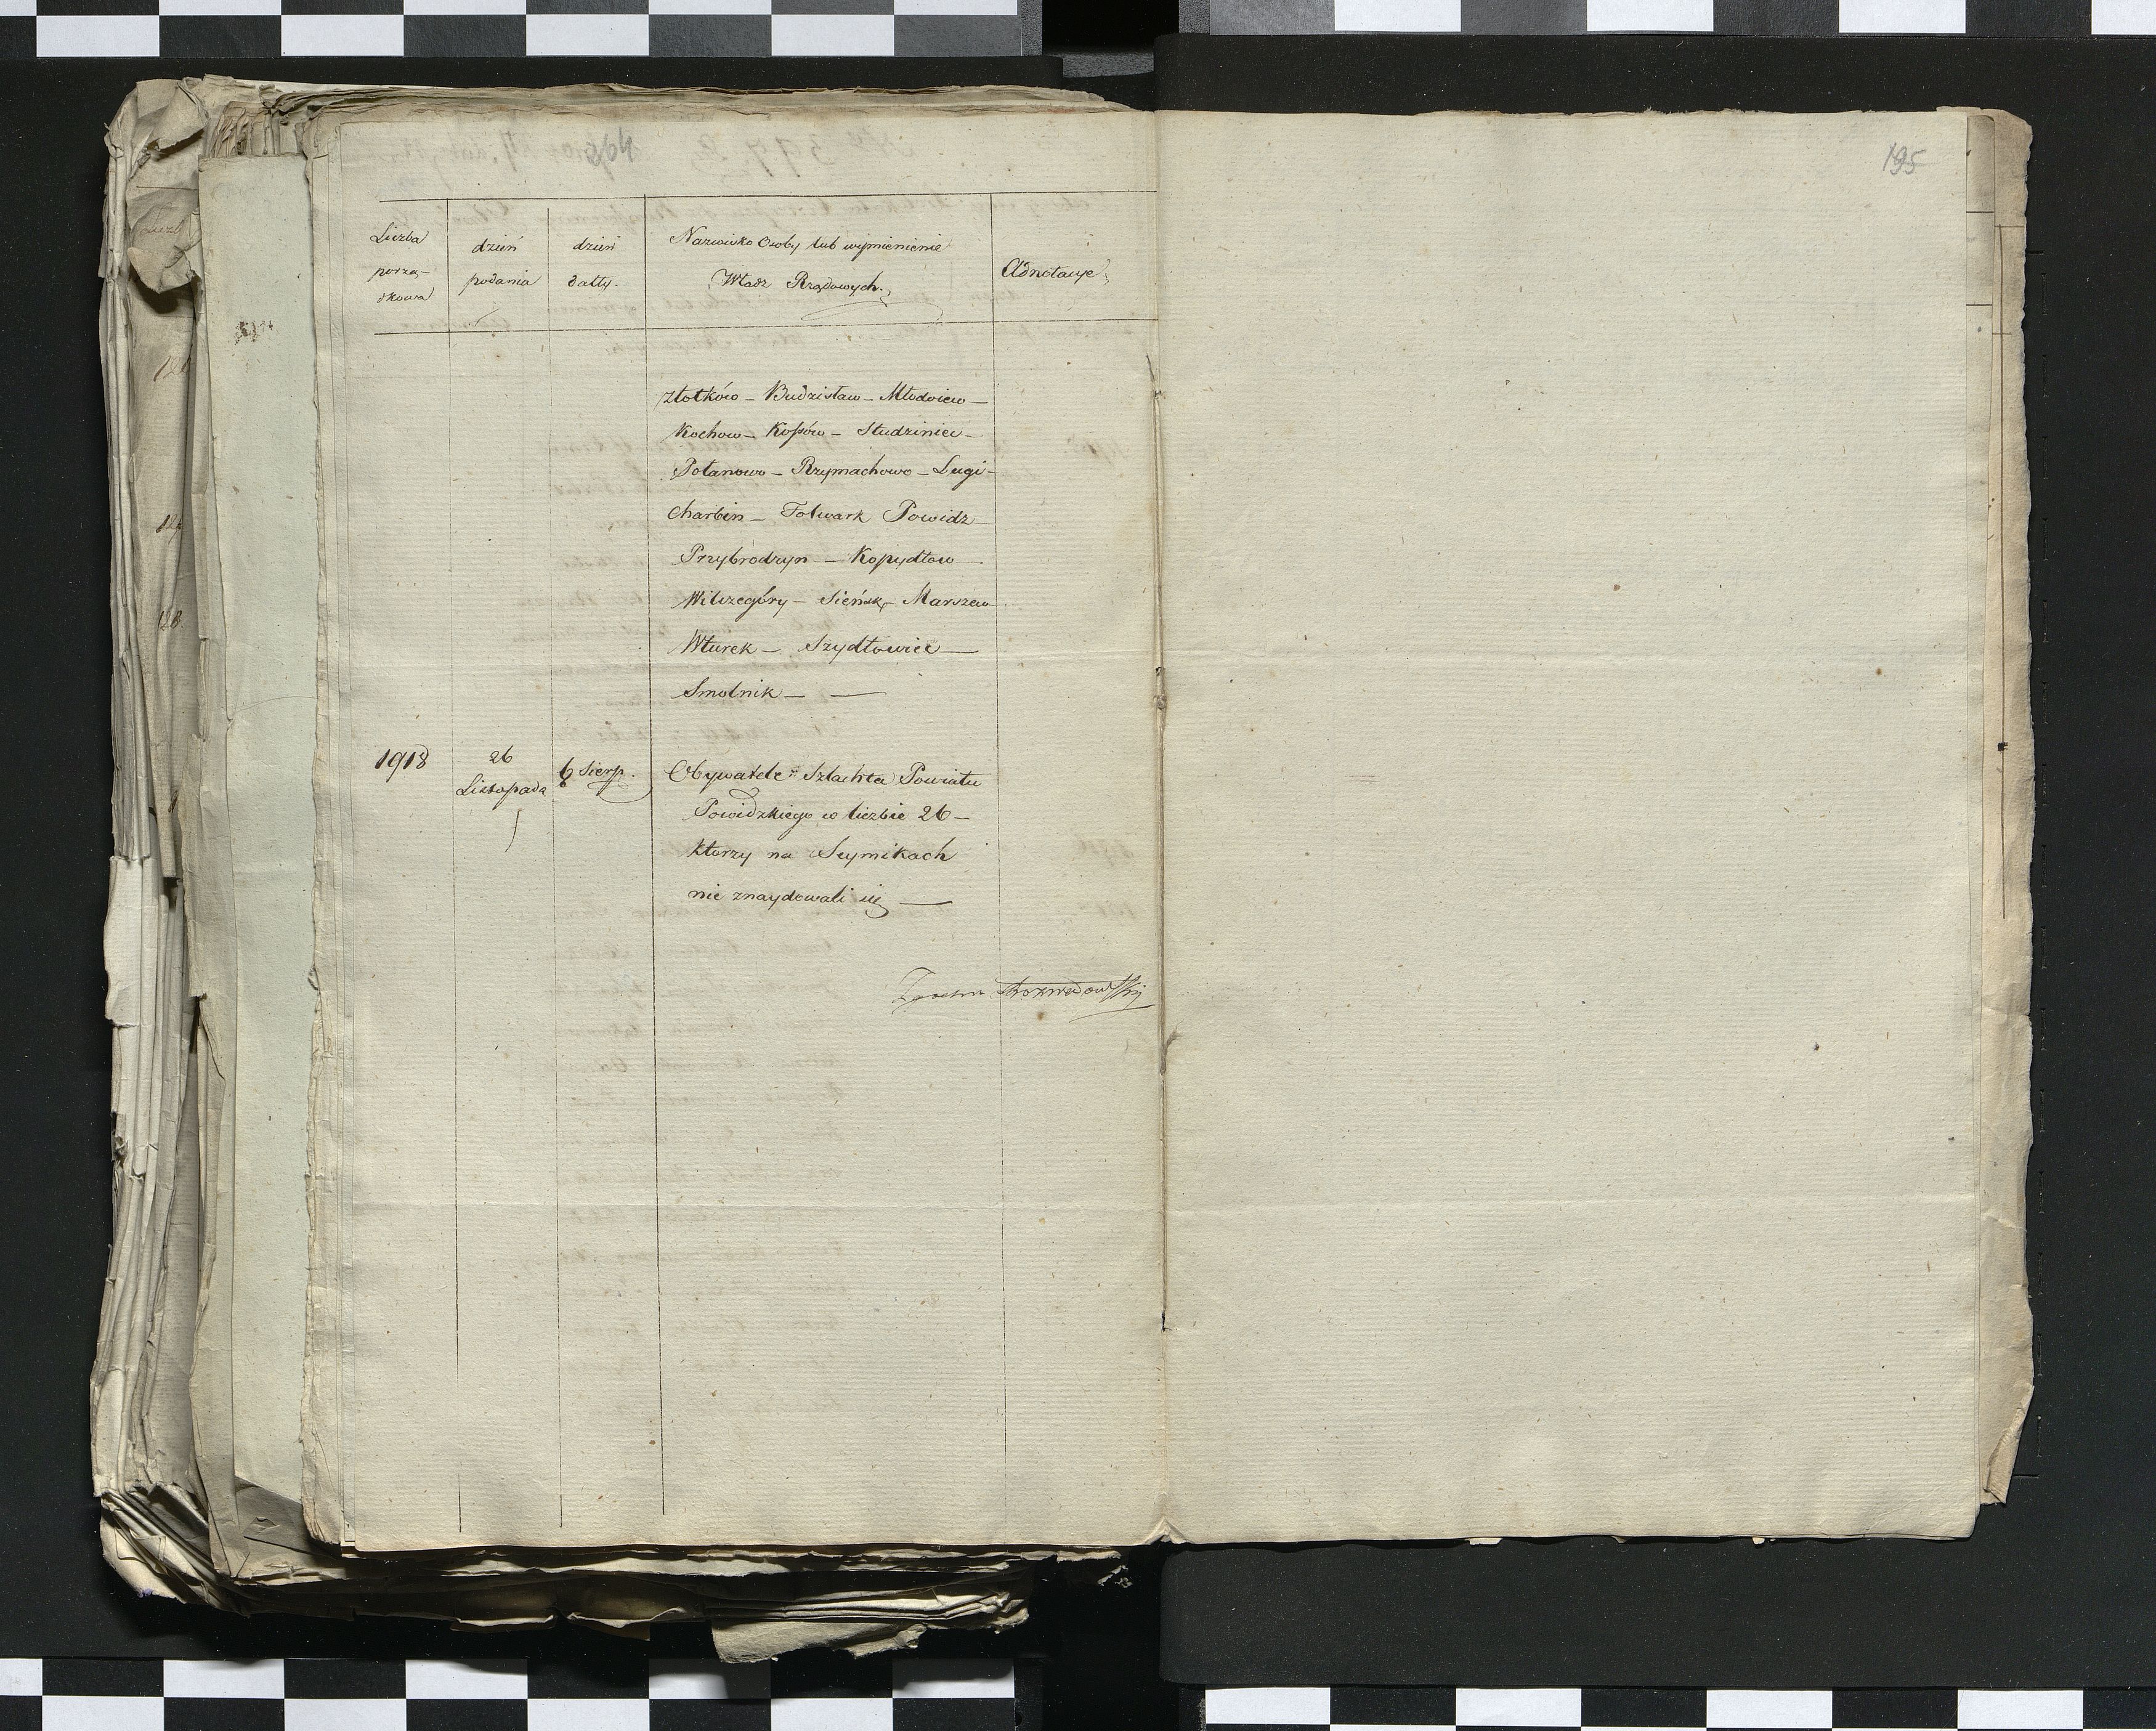 195
Liczba
porzą-
dkowa
dzień
podania
dzień
datty.
Nazwisko Osoby lub wymienienie
Władz Rządowych.
Adnotacye
Złotków — Budzisław — Młodoiew —
Kochow — Kosów — Studziniec —
Polanowo — Rzymachowo — Lugi —
Charbin — Folwark Powidz —
Przybrodzyn — Kopydłow —
Wilczegóry — Sieńsk — Marszew
Wturek — Szydłowiec —
Smolnik — —
1918
26
Listopada
6 Sierp.
Obywatele Szlachta Powiatu
Powidzkiego w liczbie 26 —
ktorzy na Seymikach
nie znaydowali się —
Rozwadowski